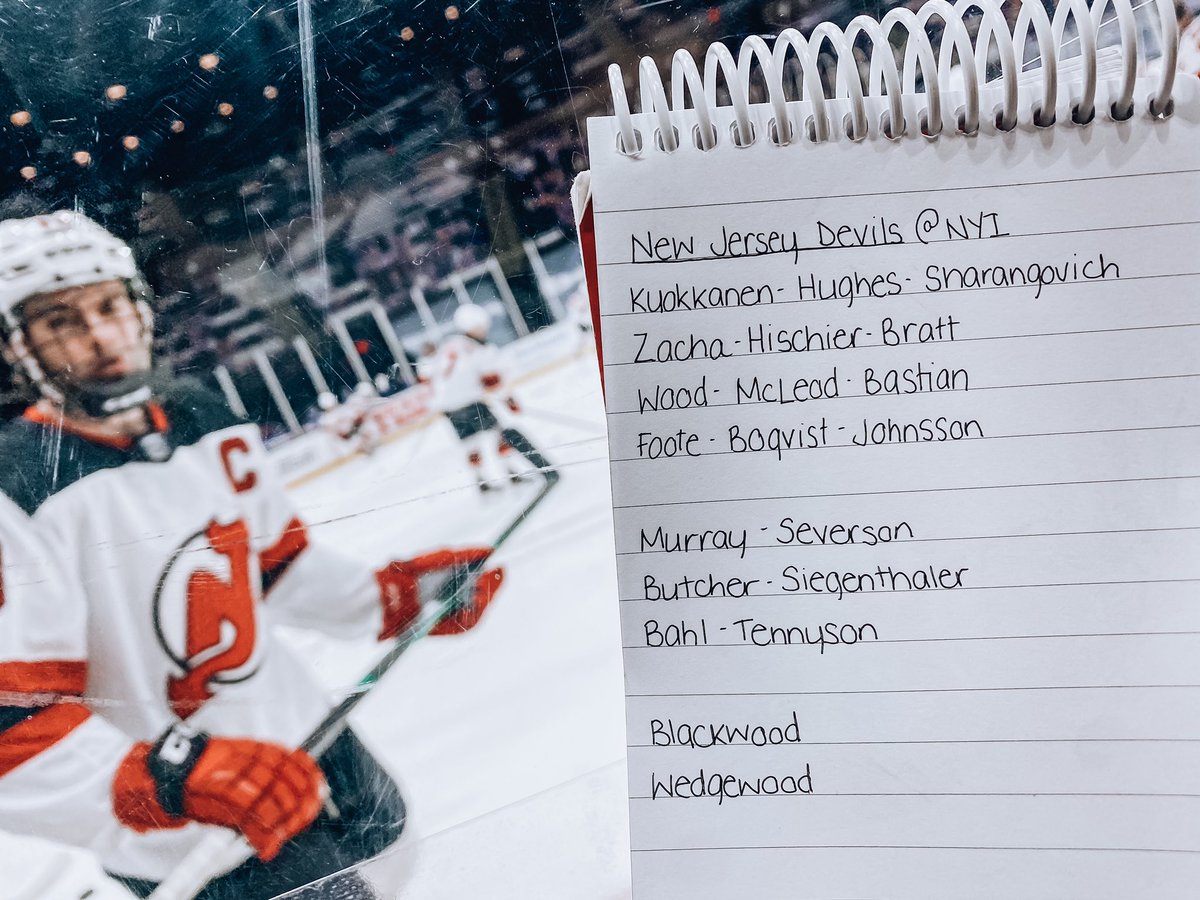 New Jersey Devils @NYI
Kuokkanen - Hughes - Sharangovich
Zacha - Hischier - Bratt
Wood - McLeod - Bastian
Foote - Boqvist - Johnsson
Murray - Severson
Butcher - Siegenthaler
Bahl - Tennyson
Blackwood
Wedgewood
C